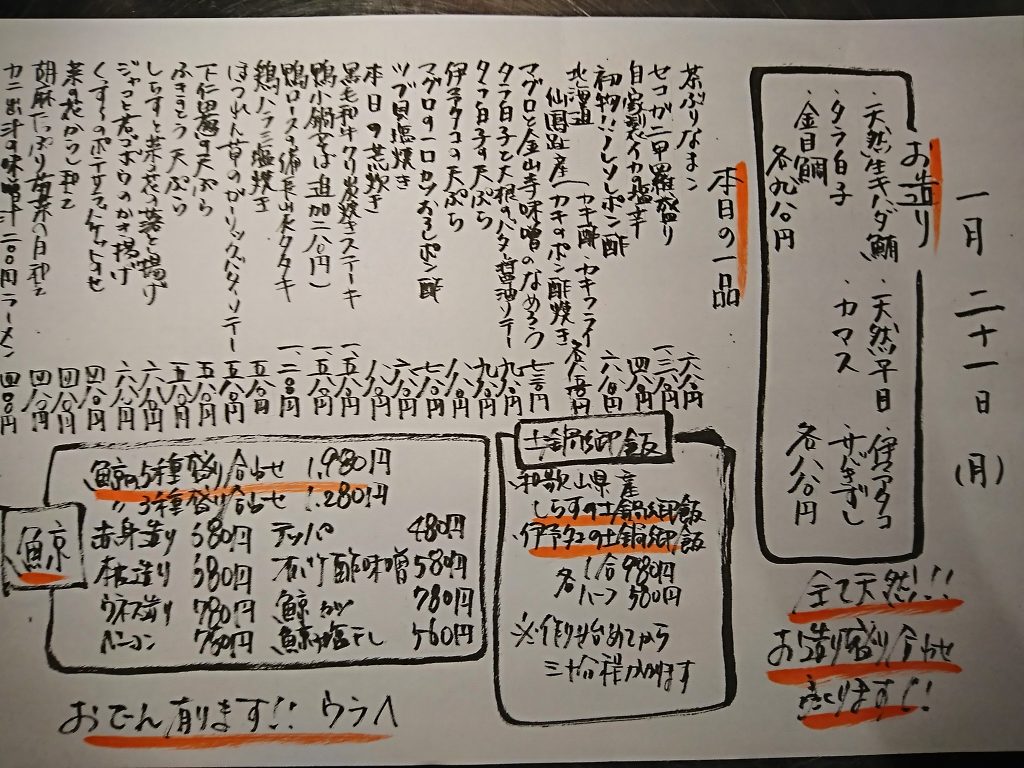 一月二十一日(月)
お造り
・天然生キハダ鮪 ・天然平目 ・伊予タコ
・タラ白子 ・カマス ・サゴキずし
・金目鯛
各九八〇円 各八八〇円
全て天然!!
お造り盛り合わせ
売ります!!
本日の一品
茶ぶりなまこ 六八〇円
セコガニ甲羅盛り 一、三八〇円
自家製イカの塩辛 四八〇円
初物!!ノレソレポン酢 六八〇円
北海道 仙鳳趾産(カキ酢・カキフライ カキのポン酢焼き
マグロと金山寺味噌のなめろう 七八〇円
タラ白子と大根のバター醤油ソテー 九八〇円
タラ白子の天ぷら 九八〇円
伊予タコの天ぷら 八八〇円
マグロの一口カツおろしポン酢 七八〇円
ツブ貝塩焼き 六八〇円
本日の荒炊き 八八〇円
黒毛和牛クリ炭焼きステーキ 一、五八〇円
鴨小鍋(そば追加二八〇円) 一、五八〇円
鴨ロースの備長山水タタキ 一、二〇〇円
鶏ハラミ塩焼き 五八〇円
ほうれん草のガーリックバターソテー 五八〇円
下仁田葱の天ぷら 五八〇円
ふきのとう天ぷら 五八〇円
しらすと菜の花の落とし揚げ 六八〇円
ジャコと若ゴボウのかき揚げ 六八〇円
くずし のポテサラ
菜の花からし和え 四八〇円
胡麻たっぷり 菜の白和え 四八〇円
カニ出汁の味噌汁二〇〇円ラーメン 四〇〇円
土鍋御飯
和歌山県産
しらすの土鍋御飯
伊予タコの土鍋御飯
各 1合 980円
ハーフ 580円
※作り始めてから
三十分程かかります
鯨
鯨の5種盛り合わせ 1,980円
〃3種盛り合わせ 1,280円
赤身造り 580円 テッパ 480円
本皮造り 580円 オバケ酢味噌 580円
ウネス造り 780円 鯨カツ 780円
ベーコン 780円 鯨の塩干し 560円
おでん有ります!! ウラへ